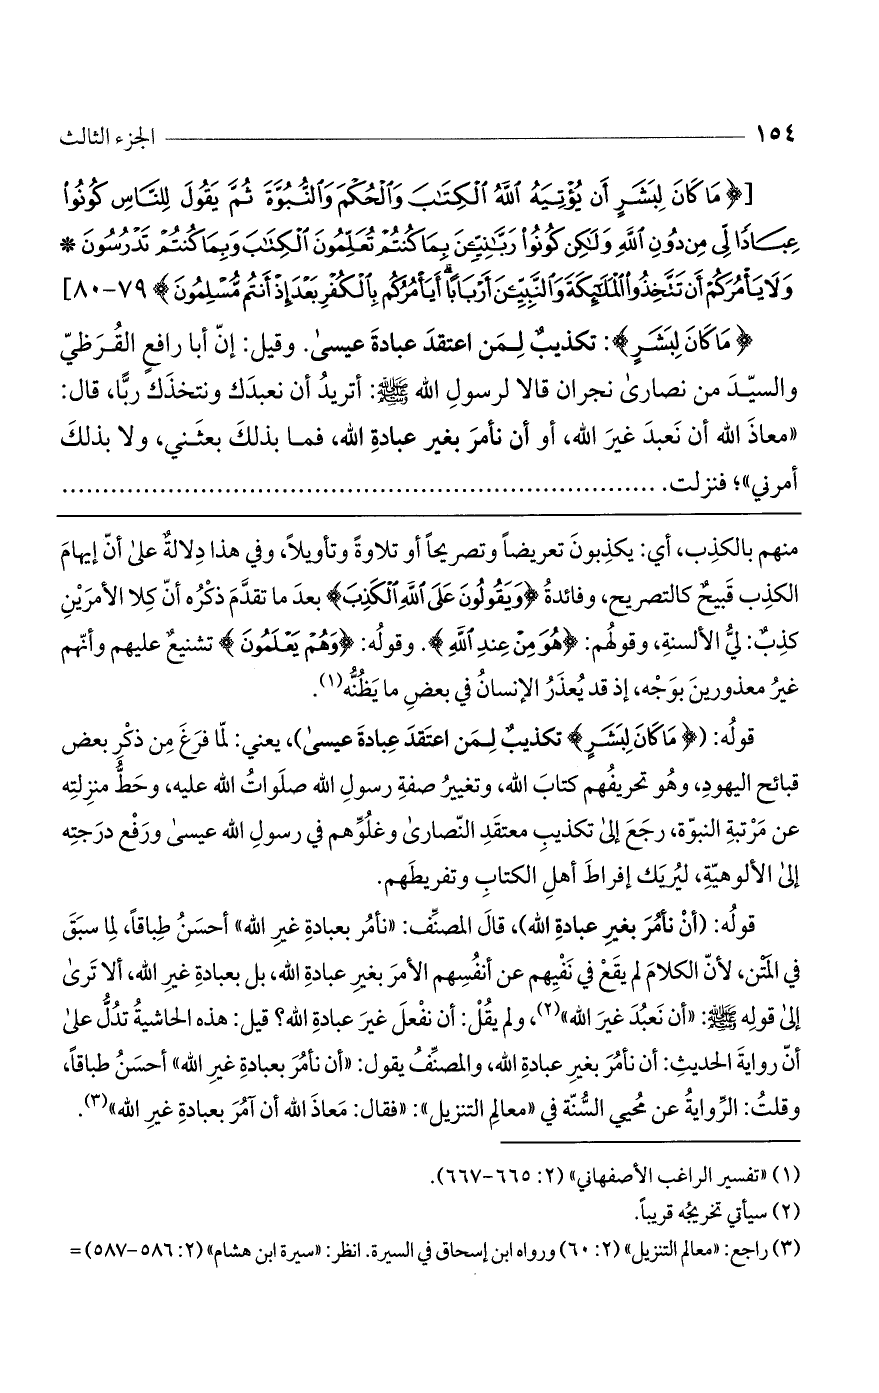 ١٥٤ ــــــــــــــــــــــــــــــــــــــــ الجزء الثالث
[﴿مَا كَانَ لِبَشَرٍ أَن يُؤْتِيَهُ ٱللَّهُ ٱلْكِتَٰبَ وَٱلْحُكْمَ وَٱلنُّبُوَّةَ ثُمَّ يَقُولَ لِلنَّاسِ كُونُوا۟
عِبَادًا لِّى مِن دُونِ ٱللَّهِ وَلَٰكِن كُونُوا۟ رَبَّٰنِيِّۦنَ بِمَا كُنتُمْ تُعَلِّمُونَ ٱلْكِتَٰبَ وَبِمَا كُنتُمْ تَدْرُسُونَ *
وَلَا يَأْمُرَكُمْ أَن تَتَّخِذُوا۟ ٱلْمَلَٰٓئِكَةَ وَٱلنَّبِيِّۦنَ أَرْبَابًا ۗ أَيَأْمُرُكُم بِٱلْكُفْرِ بَعْدَ إِذْ أَنتُم مُّسْلِمُونَ﴾ ٧٩-٨٠]
﴿مَا كَانَ لِبَشَرٍ﴾: تكذيبٌ لِـمَن اعتقدَ عبادةَ عيسىٰ. وقيل: إنّ أبا رافعٍ القُـرَظيّ
والسيّـدَ من نصارىٰ نجران قالا لرسولِ الله ﷺ: أتريدُ أن نعبدَك ونتخذَك ربًّا، قال:
«معاذَ الله أن نَعبدَ غيرَ الله، أو أن نأمرَ بغير عبادةِ الله، فمـا بذلكَ بعثَـني، ولا بذلكَ
أمرني»؛ فنزلت. ........................................................................
منهم بالكذِب، أي: يكذِبونَ تعريضاً وتصريحاً أو تلاوةً وتأويلاً، وفي هذا دِلالةٌ علىٰ أنّ إيهامَ
الكذِب قَبيحٌ كالتصريح، وفائدةُ ﴿وَيَقُولُونَ عَلَى ٱللَّهِ ٱلْكَذِبَ﴾ بعدَ ما تقدَّمَ ذكْرُه أنّ كِلا الأمرَيْنِ
كذِبٌ: ليُّ الألسنةِ، وقولُهم: ﴿هُوَ مِنْ عِندِ ٱللَّهِ﴾. وقولُه: ﴿وَهُمْ يَعْلَمُونَ﴾ تشنيعٌ عليهم وأنّهم
غيرُ معذورينَ بوَجْه، إذ قد يُعذَرُ الإنسانُ في بعضِ ما يَظُنُّه(١).
قولُه: (﴿مَا كَانَ لِبَشَرٍ﴾ تكذيبٌ لِـمَن اعتَقدَ عِبادةَ عيسىٰ)، يعني: لمّا فرَغَ مِن ذكْرِ بعض
قبائح اليهودِ، وهُو تحريفُهم كتابَ الله، وتغييرُ صفةِ رسولِ الله صلَواتُ الله عليه، وحَطُّ منزِلتِه
عن مَرْتبةِ النبوّة، رجَعَ إلىٰ تكذيبِ معتقَدِ النّصارىٰ وغلُوِّهم في رسولِ الله عيسىٰ ورَفْع درَجتِه
إلىٰ الألوهيّةِ، ليُريَك إفراطَ أهلِ الكتابِ وتفريطَهم.
قولُه: (أنْ نأمُرَ بغيرِ عبادةِ الله)، قالَ المصنِّف: «نأمُر بعبادةِ غيرِ الله» أحسَنُ طِباقاً، لِما سبَقَ
في المَتْن، لأنّ الكلامَ لم يقَعْ في نَفْيِهم عن أنفُسِهم الأمرَ بغيرِ عبادةِ الله، بل بعبادةِ غيرِ الله، ألا تَرىٰ
إلىٰ قولِه ﷺ: «أن نَعبُدَ غيرَ الله»(٢)، ولم يقُلْ: أن نفْعلَ غيرَ عبادةِ الله؟ قيل: هذه الحاشيةُ تدُلُّ علىٰ
أنّ روايةَ الحديثِ: أن نأمُرَ بغيرِ عبادةِ الله، والمصنِّفُ يقول: «أن نأمُرَ بعبادةِ غيرِ الله» أحسَنُ طباقاً،
وقلتُ: الرِّوايةُ عن مُحيي السُّنّة في «معالمِ التنزيل»: «فقال: مَعاذَ الله أن آمُرَ بعبادةِ غيرِ الله»(٣).
(١) «تفسير الراغب الأصفهاني» (٢: ٦٦٥-٦٦٧).
(٢) سيأتي تخريجُه قريباً.
(٣) راجع: «معالم التنزيل» (٢: ٦٠) ورواه ابن إسحاق في السيرة. انظر: «سيرة ابن هشام» (٢: ٥٨٦-٥٨٧) =